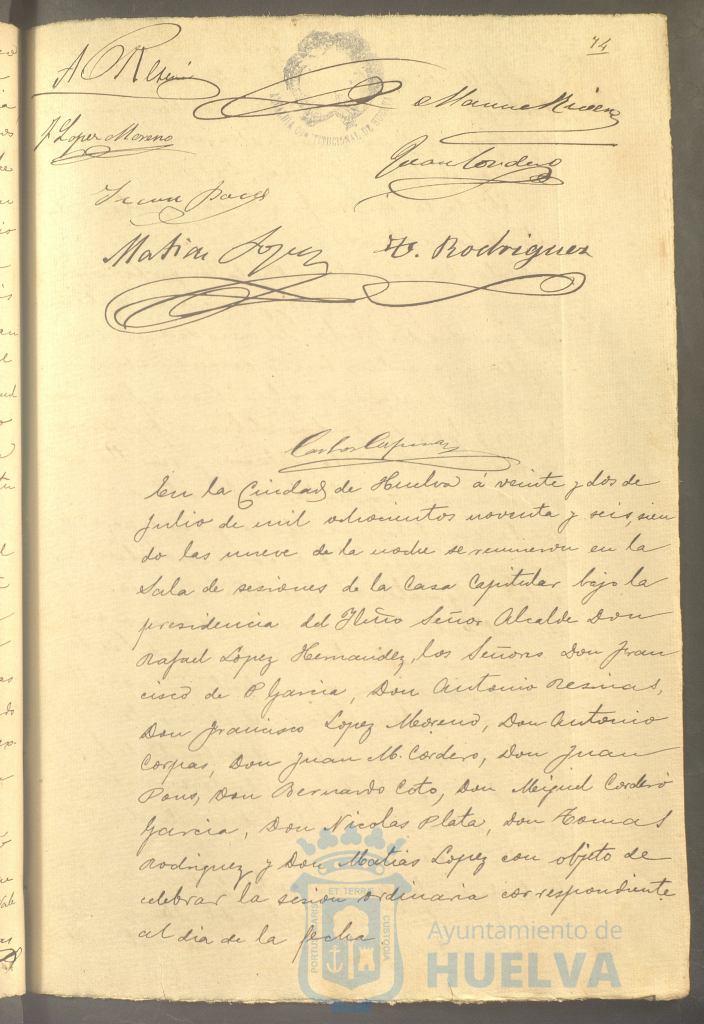 74
A Resinas
Manuel Rivera
F. Lopez Moreno
Juan Cordero
Juan Pons
Matias Lopez
T. Rodriguez
Carlos
En la Ciudad de Huelva á veinte y dos de
Julio de mil ochocientos noventa y seis, sien
do las nueve de la noche se reunieron en la
Sala de sesiones de la Casa Capitular bajo la
presidencia del Iltmo Señor Alcalde Don
Rafael Lopez Hernandez, los Señores Don Fran
cisco de P. Garcia, Don Antonio Resinas,
Don Francisco Lopez Moreno, Don Antonio
Corpas, Don Juan M. Cordero, Don Juan
Pons, Don Bernardo Coto, Don Miguel Cordero
Garcia, Don Nicolas Plata, Don Tomas
Rodriguez y Don Matias Lopez con objeto de
celebrar la sesion ordinaria correspondiente
al dia de la fecha.
PORTUS MARIS ET TERRE CUSTODIA
Ayuntamiento de
HUELVA